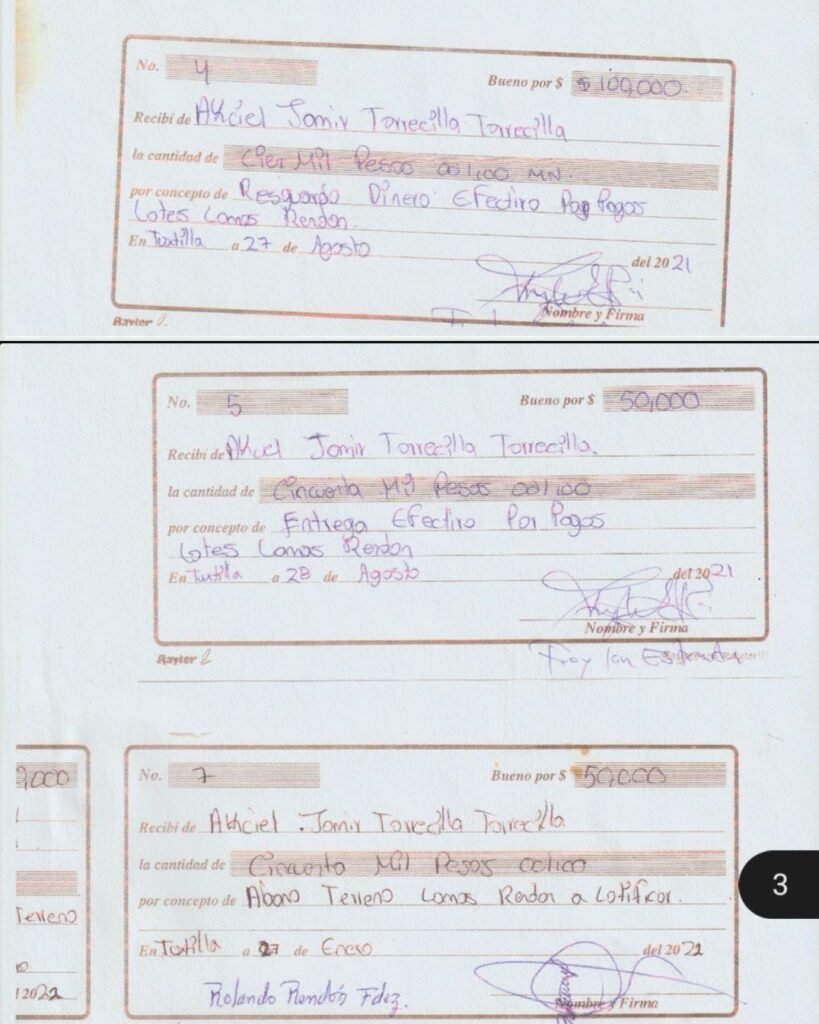 No. 4 Bueno por $ $ 100,000.
Recibí de Akciel Jomir Torrecilla Torrecilla
la cantidad de Cien Mil Pesos 00/100 MN.
por concepto de Resguardo Dinero Efectivo Por Pagos
Lotes Lomas Rendon.
En Tuxtilla a 27 de Agosto del 2021
Nombre y Firma
Raxter
No. 5 Bueno por $ 50,000
Recibí de Akciel Jomir Torrecilla Torrecilla.
la cantidad de Cincuenta Mil Pesos 00/100
por concepto de Entrega Efectivo Por Pagos
Lotes Lomas Rendon
En Tuxtilla a 28 de Agosto del 2021
Nombre y Firma
Raxter
Troy Ian
,000 No. 7 Bueno por $ 50,000
Recibí de Akhciel Jomir Torrecilla Torrecilla
la cantidad de Cincuenta Mil Pesos 00/100
por concepto de Abono Terreno Lomas Rendon a Lotificar.
Terreno
En Tuxtilla a 27 de Enero del 2022
2022
Rolando Rendón Fdez.
Nombre y Firma
3